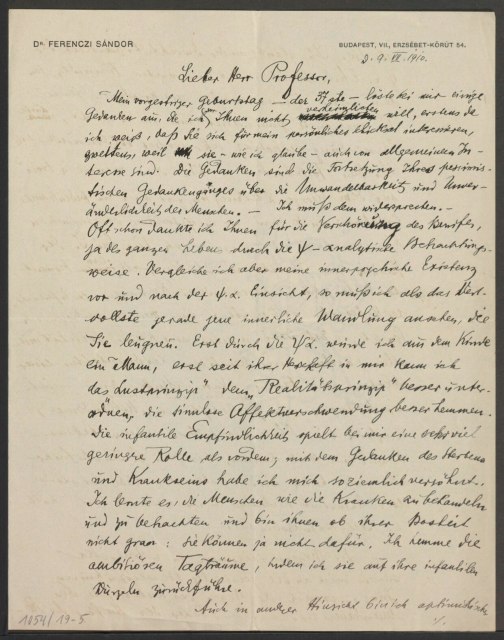 Dr. FERENCZI SÁNDOR
BUDAPEST, VII., ERZSÉBET-KÖRÚT 54.
d. 9. VII. 1910.
Lieber Herr Professor,
Mein vorgestriger Geburtstag – der 37ste – löste bei mir einige
Gedanken aus, die ich Ihnen nicht verheimlichen will, erstens da
ich weiß, daß Sie sich für mein persönliches Schicksal interessieren,
zweitens, weil sie – wie ich glaube – auch von allgemeinem In-
teresse sind. Die Gedanken sind die Fortsetzung Ihres pessimis-
tischen Gedankenganges über die Unwandelbarkeit und Unver-
änderlichkeit der Menschen. – Ich muß dem widersprechen. –
Oft schon dankte ich Ihnen für die Verschönerung des Berufes,
ja des ganzen Lebens durch die ψ-analytische Betrachtungs-
weise. Vergleiche ich aber meine innerpsychische Existenz
vor und nach der ψ.α. Einsicht, so muß ich als das Wert-
vollste gerade jene innerliche Wandlung ansehen, die
Sie leugnen. Erst durch die ψα. wurde ich aus dem Kinde
ein Mann, erst seit ihrer Herrschaft in mir kann ich
das Lustprinzip dem „Realitätsprinzip" besser unter-
ordnen, die sinnlose Affektverschwendung besser hemmen.
Die infantile Empfindlichkeit spielt bei mir eine sehr viel
geringre Rolle als vordem; mit dem Gedanken des Sterbens
und Krankseins habe ich mich so ziemlich versöhnt.
Ich lernte es, die Menschen wie die Kranken zu behandeln
und zu betrachten und bin ihnen ob ihrer Bosheit
nicht gram: sie können ja nicht dafür. Ich hemme die
ambitiösen Tagträume, indem ich sie auf ihre infantilen
Wurzeln zurückführe.
Auch in andrer Hinsicht bin ich optimistisch
./.
1054/19-5